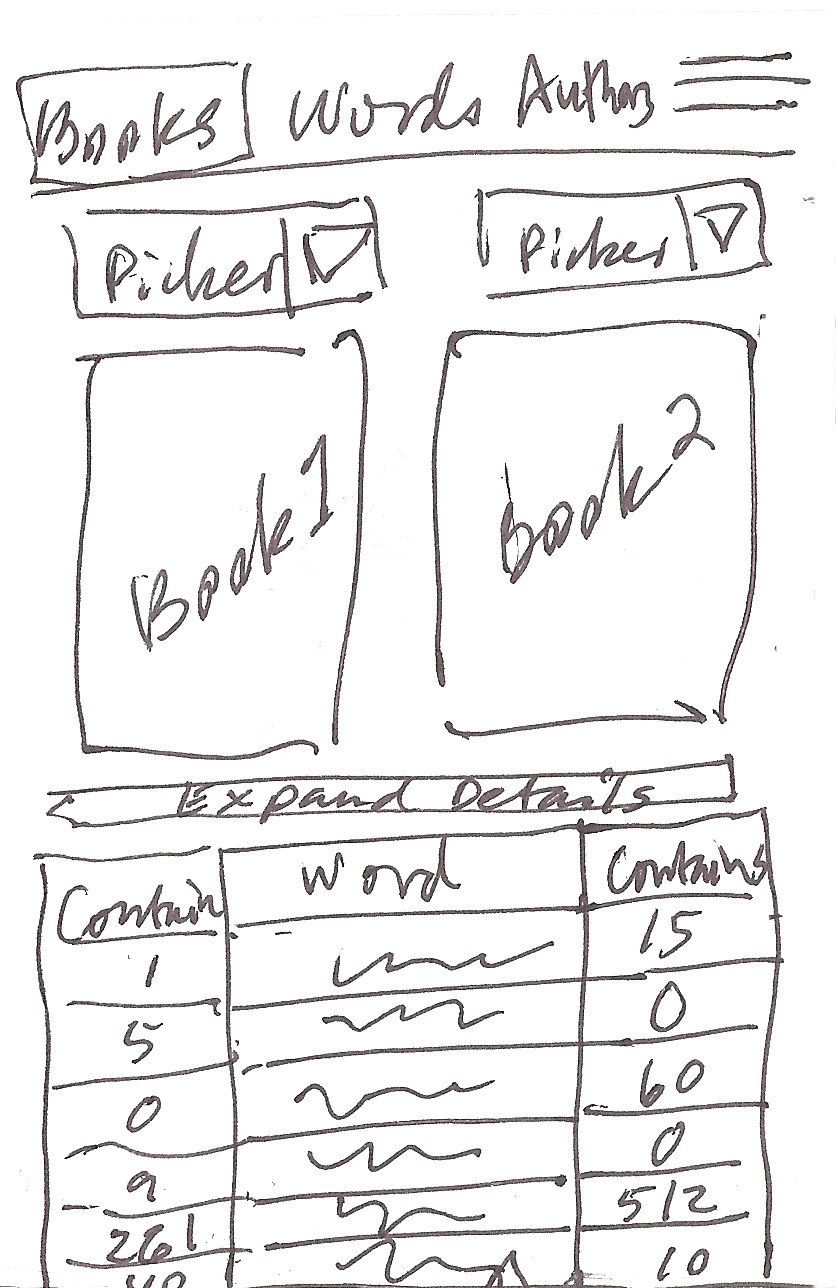 Books Words Authors
Picker Picker
Book 1 Book 2
Expand Details
Contain Word Contains
1 15
5 0
0 60
9 0
261 512
10